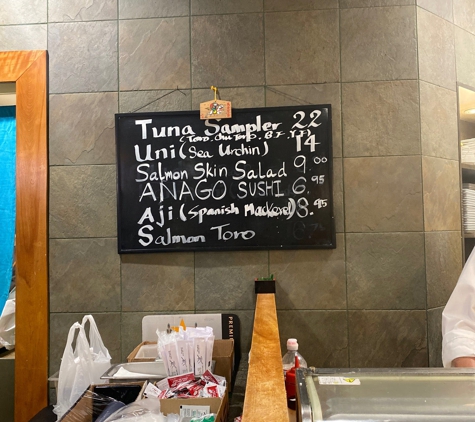 Tuna Sampler 22
(Toro, Chu Toro, B.F, Y.F)
Uni (Sea Urchin) 14
Salmon Skin Salad 9.00
ANAGO SUSHI 6.95
Aji (Spanish Mackerel) 8.95
Salmon Toro
PREMI